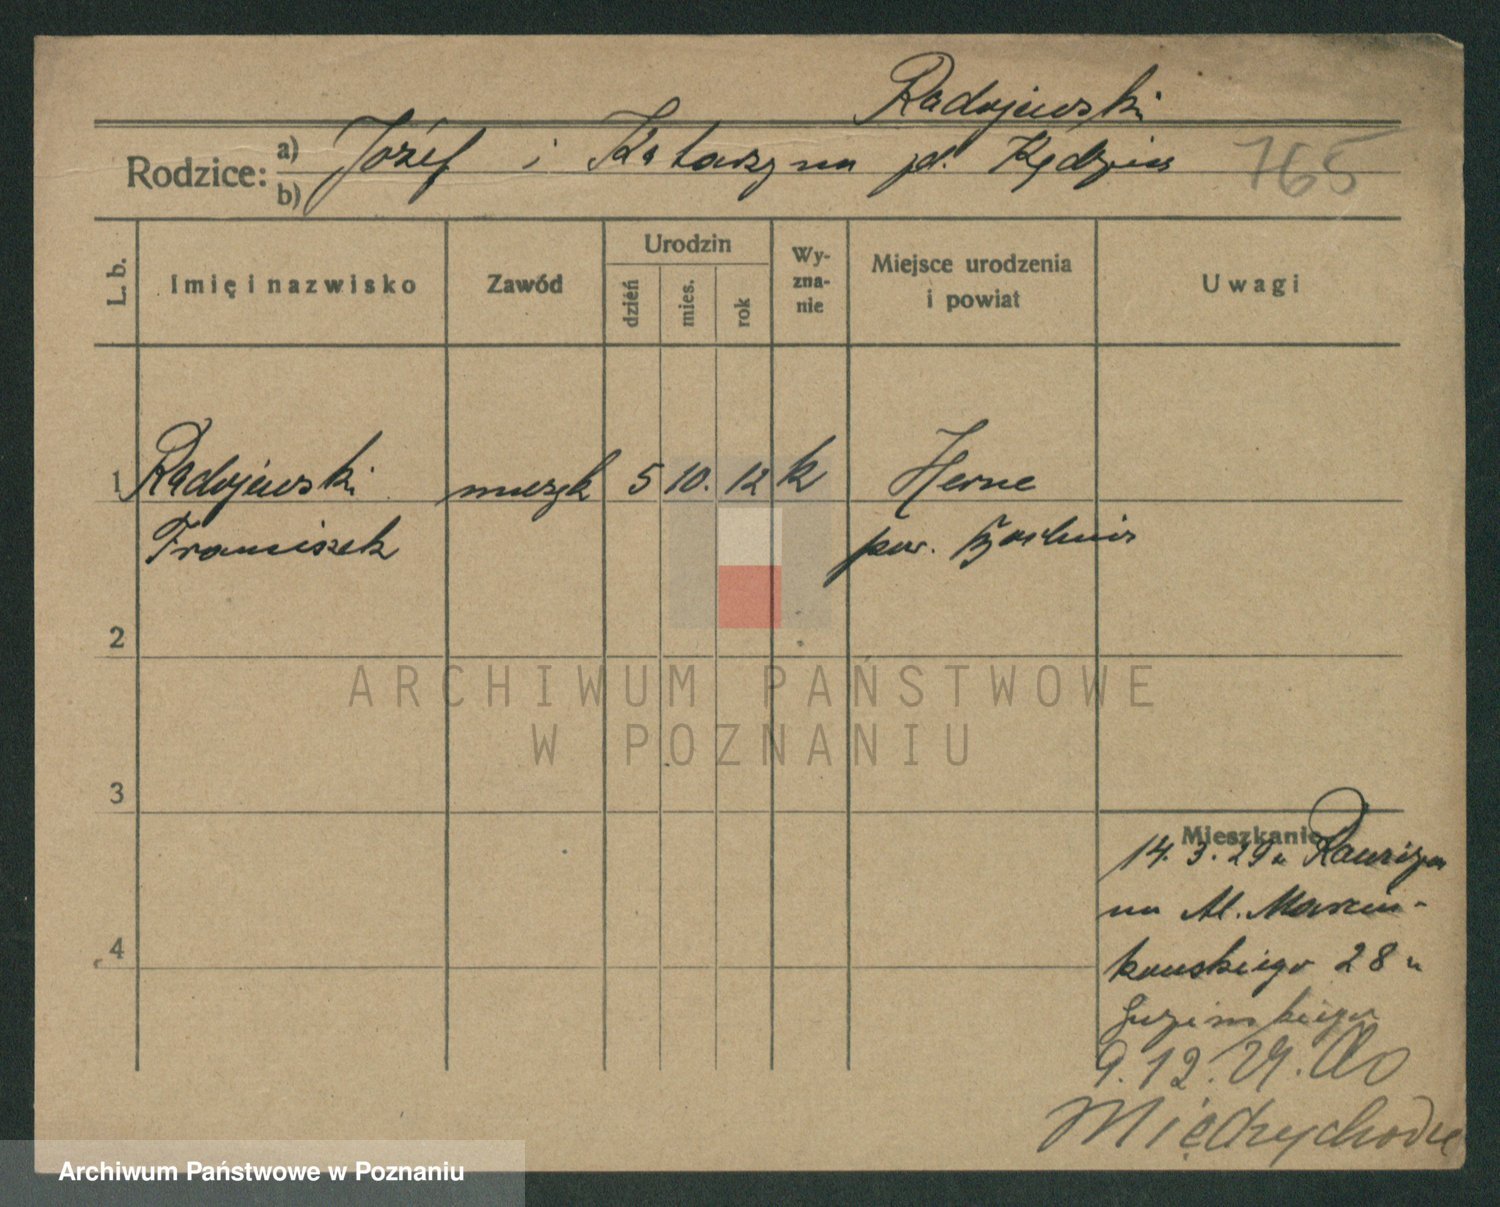 Radojewski
Rodzice: a) Józef i Katarzyna
b)
765
L. b.
Imię i nazwisko
Zawód
Urodzin
dzień
mies.
rok
Wy-
zna-
nie
Miejsce urodzenia
i powiat
Uwagi
1 Radojewski muzyk 5 10. 12 k Herne
Franciszek pow.
2
3
4
Mieszkanie
14. 3. 29
na Al. Marcin-
kowskiego 28 u
9. 12. 29. Do
Międzychodu
ARCHIWUM PAŃSTWOWE
W POZNANIU
Archiwum Państwowe w Poznaniu